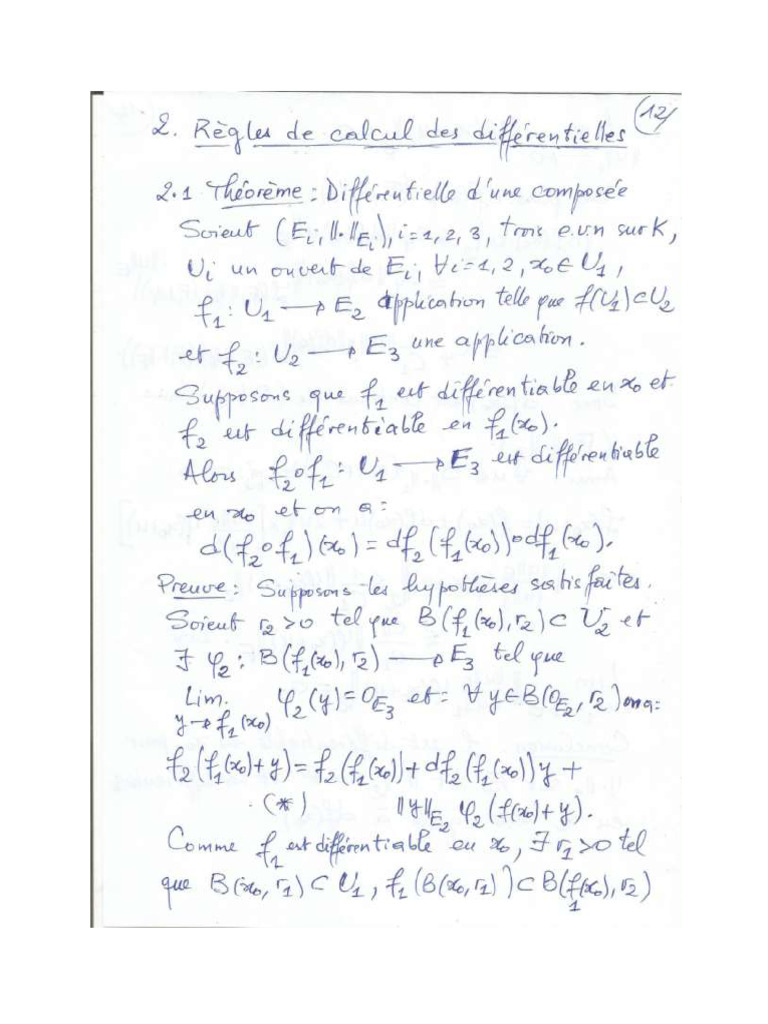 12
2. Règles de calcul des différentielles
2.1 Théorème : Différentielle d'une composée
Soient (E_i, ||·||_{E_i}), i=1, 2, 3, trois e.v.n sur K,
U_i un ouvert de E_i, ∀i=1, 2, x₀ ∈ U₁,
f₁ : U₁ → E₂ application telle que f(U₁) ⊂ U₂
et f₂ : U₂ → E₃ une application.
Supposons que f₁ est différentiable en x₀ et
f₂ est différentiable en f₁(x₀).
Alors f₂∘f₁ : U₁ → E₃ est différentiable
en x₀ et on a :
d(f₂∘f₁)(x₀) = df₂(f₁(x₀))∘df₁(x₀).
Preuve : Supposons les hypothèses satisfaites.
Soient r₂>0 tel que B(f₁(x₀), r₂) ⊂ U₂ et
∃ φ₂ : B(f₁(x₀), r₂) → E₃ tel que
Lim. φ₂(y) = 0_{E₃} et : ∀ y ∈ B(0_{E₂}, r₂) on a :
y → f₁(x₀)
f₂(f₁(x₀)+y) = f₂(f₁(x₀)) + df₂(f₁(x₀))y +
(*) ||y||_{E₂} φ₂(f(x₀)+y).
Comme f₁ est différentiable en x₀, ∃ r₁>0 tel
que B(x₀, r₁) ⊂ U₁, f₁(B(x₀, r₁)) ⊂ B(f₁(x₀), r₂)